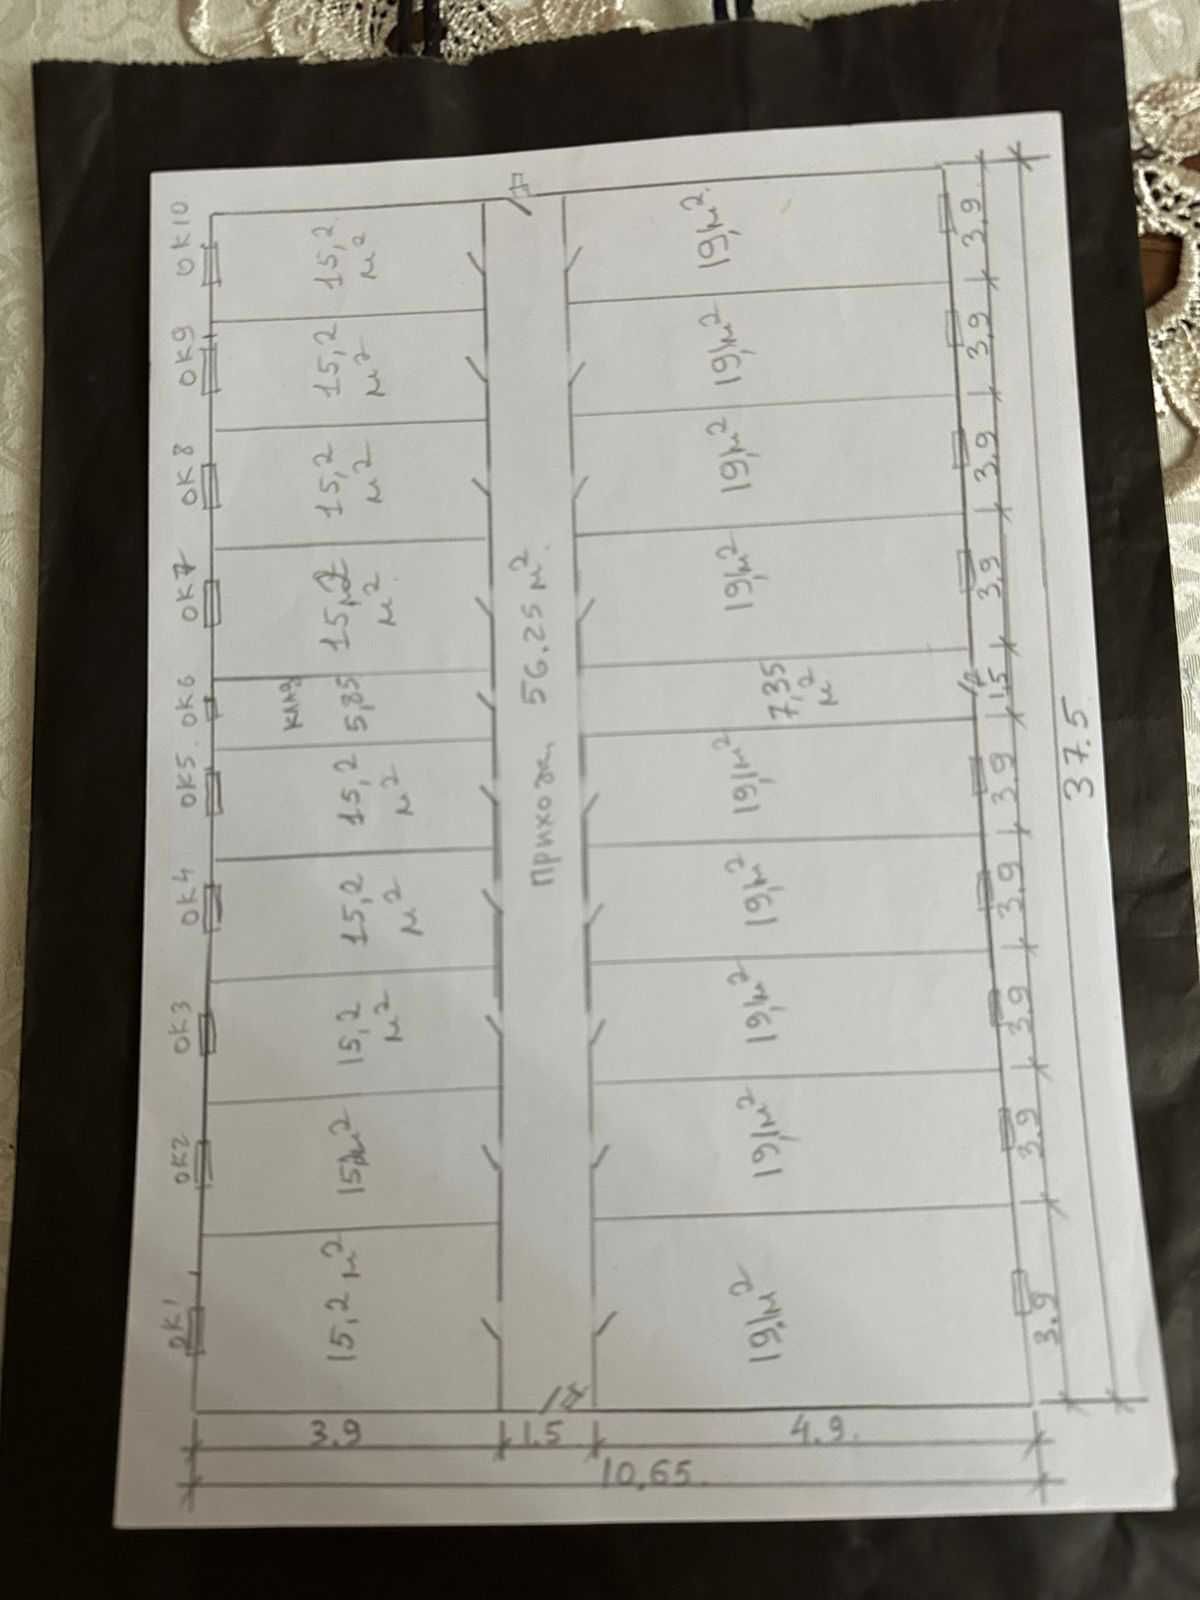 ОК1
ОК2
ОК3
ОК4
ОК5
ОК6
ОК7
ОК8
ОК9
ОК10
15,2 м²
15,2
м²
15,2
м²
15,2
м²
клад
5,85
м²
15,2
м²
15,2
м²
15,2
м²
Прихож. 56.25 м²
19,1м²
19,1м²
19,1м²
19,1м²
19,1м²
7,35
м²
19,1м²
19,1м²
19,1м²
19,1м²
3.9
3.9
3.9
3.9
3.9
1,5
3.9
3.9
3.9
3.9
37.5
3.9
1.5
4.9
10,65